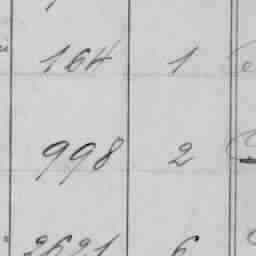 164 1
998 2
2621 6